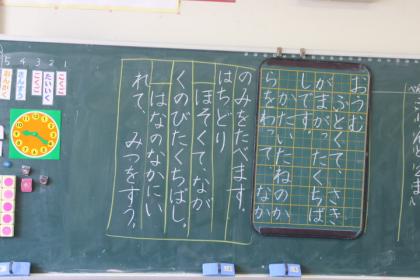 おうむ
ぶとくて、さき
がまがったくちば
しです。
かたいたねのか
らをわって、なか
のみをたべます。
はちどり
ほそくて、なが
くのびたくちばし。
はなのなかにい
れて、みつをすう。
1 こくご
2 たいいく
3 こくご
4 さんすう
5 おんがく